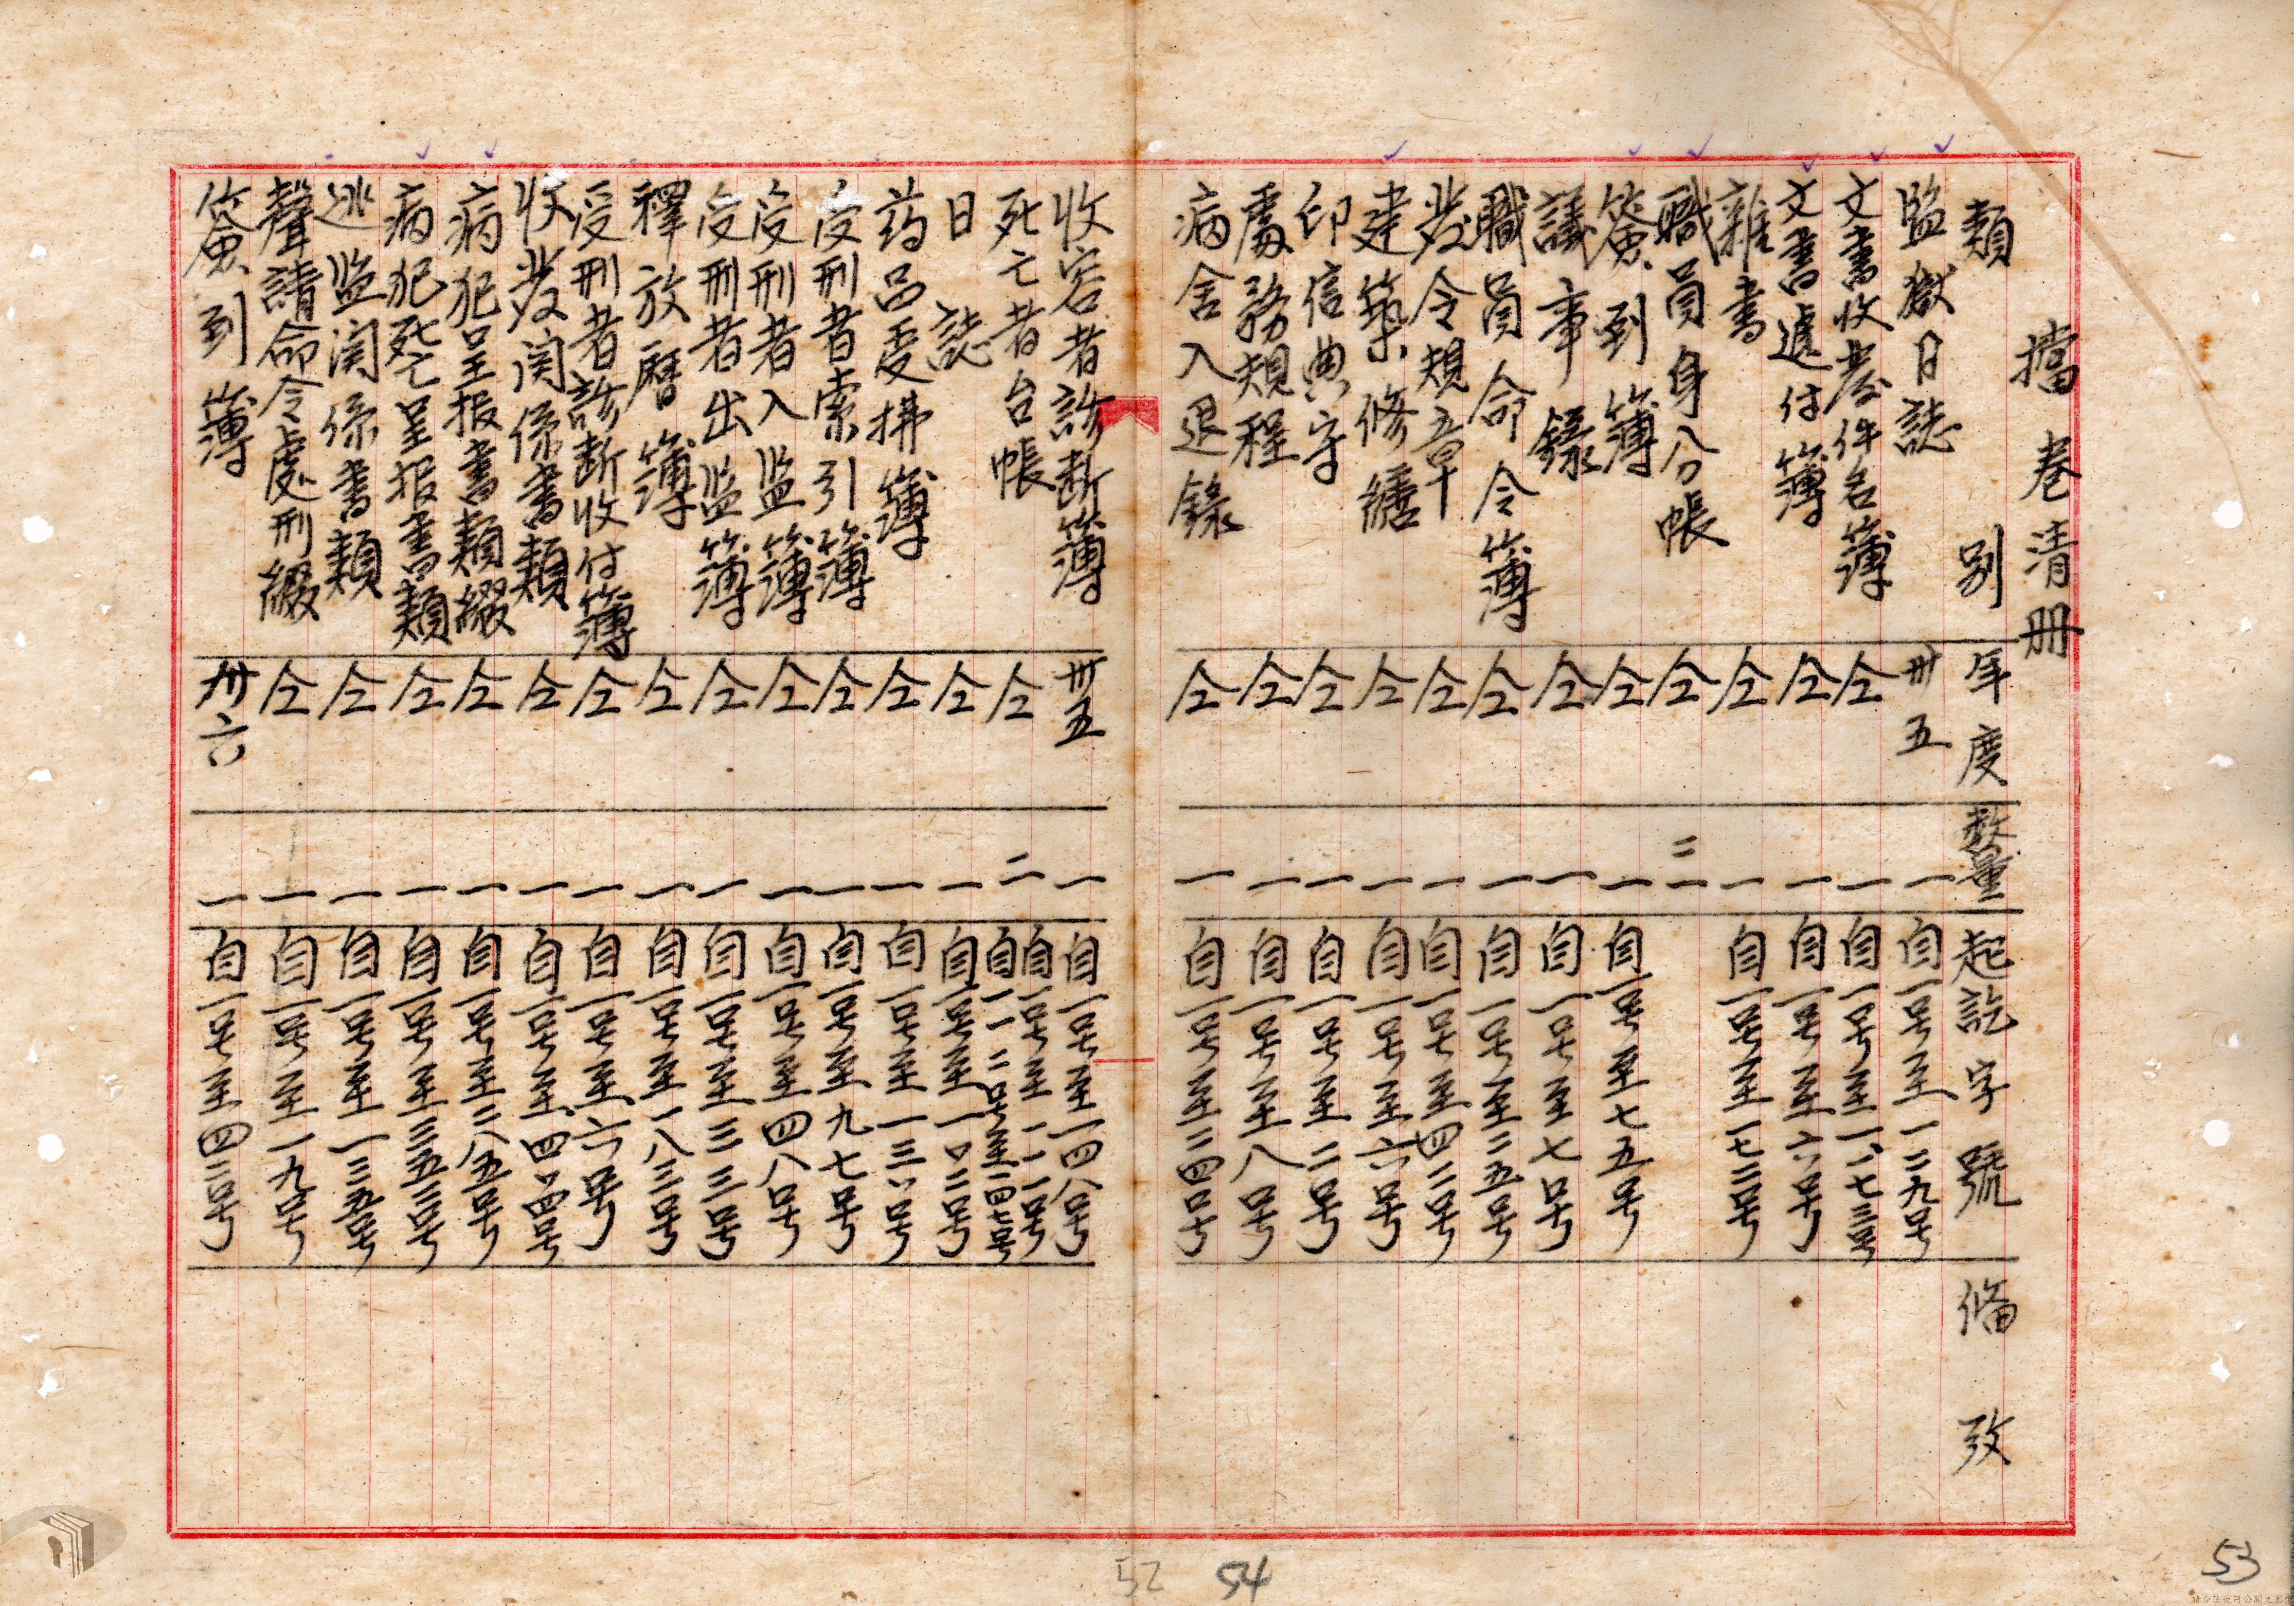 擋卷清冊
類別 年度 数量 起訖字號 俻攷
監獄日誌 卅五 一 自一号至一二九号
文書收發件名簿 仝 一 自一号至一六七三号
文書遞付簿 仝 一 自一号至六号
雜書 仝 一 自一号至一七二号
職員身分帳 仝 二一
簽到簿 仝 一 自一号至七五号
議事錄 仝 一 自一号至七号
職員命令簿 仝 一 自一号至二五号
發令規章 仝 一 自一号至四二号
建築修繕 仝 一 自一号至六号
印信典守 仝 一 自一号至二号
處務規程 仝 一 自一号至八号
病舍入退錄 仝 一 自一号至二四号
收容者診断簿 卅五 一 自一号至一四八号
死亡者台帳 仝 二 自一号至一一一号 自一一二号至一四七号
日誌 仝 一 自一号至一〇二号
药品受拂簿 仝 一 自一号至一三六号
受刑者索引簿 仝 一 自一号至九七号
受刑者入监簿 仝 一 自一号至四八号
受刑者出监簿 仝 一 自一号至三三号
釋放曆簿 仝 一 自一号至一八三号
受刑者診断收付簿 仝 一 自一号至六号
收發関係書類 仝 一 自一号至四〇四号
病犯呈报書類綴 仝 一 自一号至二八五号
病犯死亡呈报書類 仝 一 自一号至三五三号
逃监関係書類 仝 一 自一号至一三五号
聲請命令處刑綴 仝 一 自一号至一九号
簽到簿 卅六 一 自一号至四二号
52
54
53